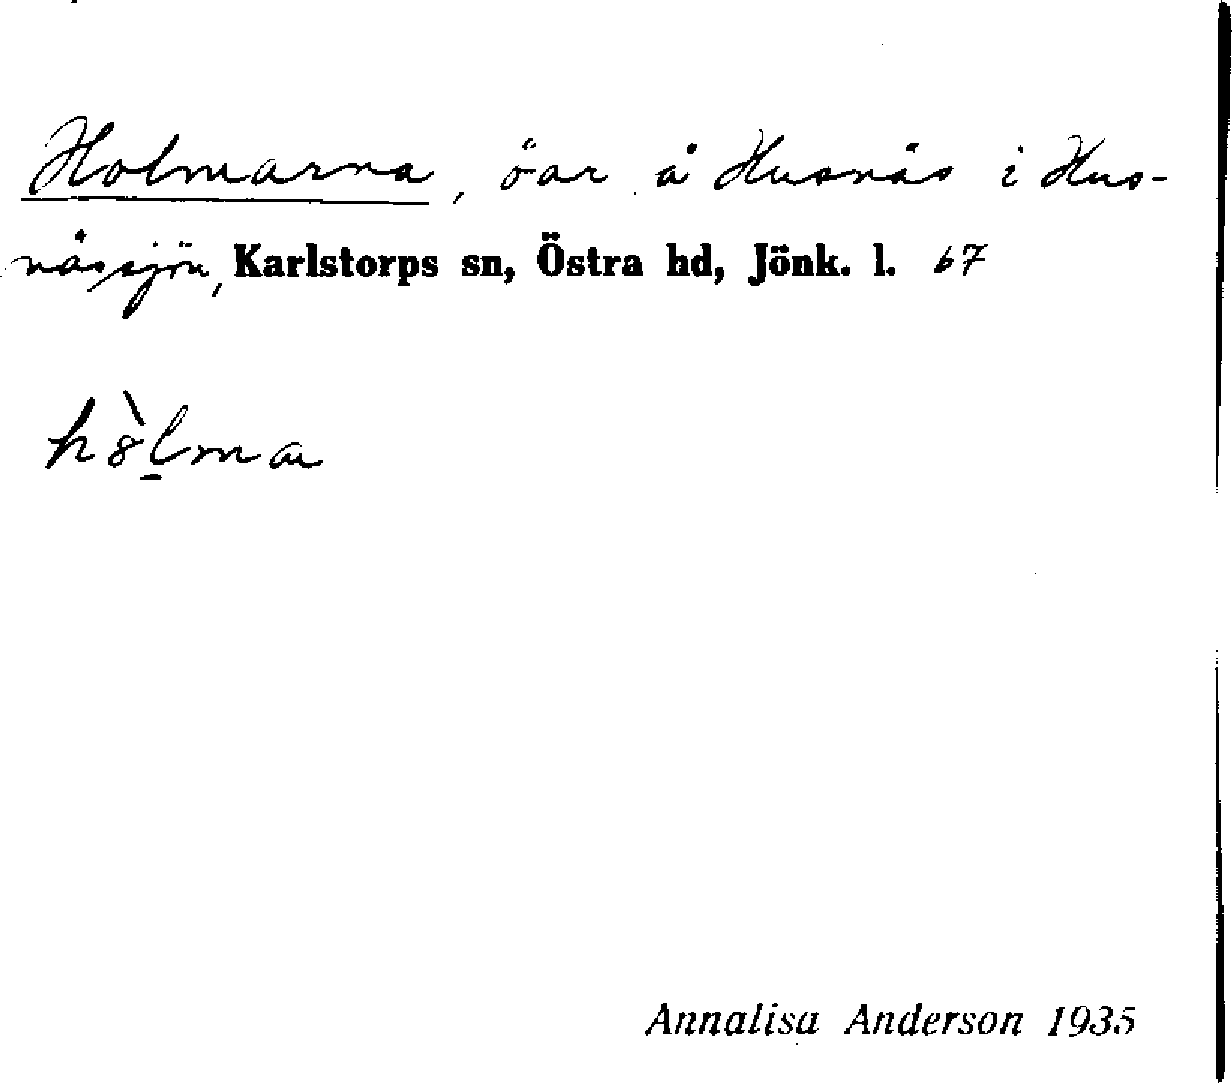 Holmarna, öar å Husnäs i Hus-
nässjön, Karlstorps sn, Östra hd, Jönk. l. 67
h8̀l̠ma
Annalisa Anderson 1935